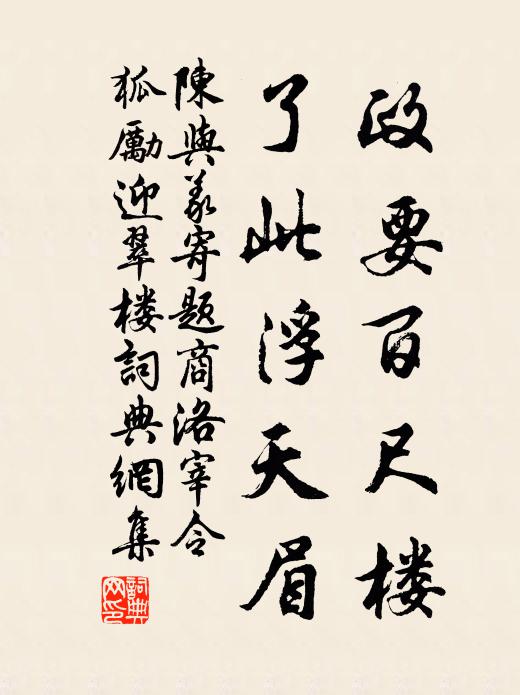 政要百尺楼
了此浮天眉
陳與義寄題商洛宰令
狐勵迎翠楼詞典網集
詞典
网印